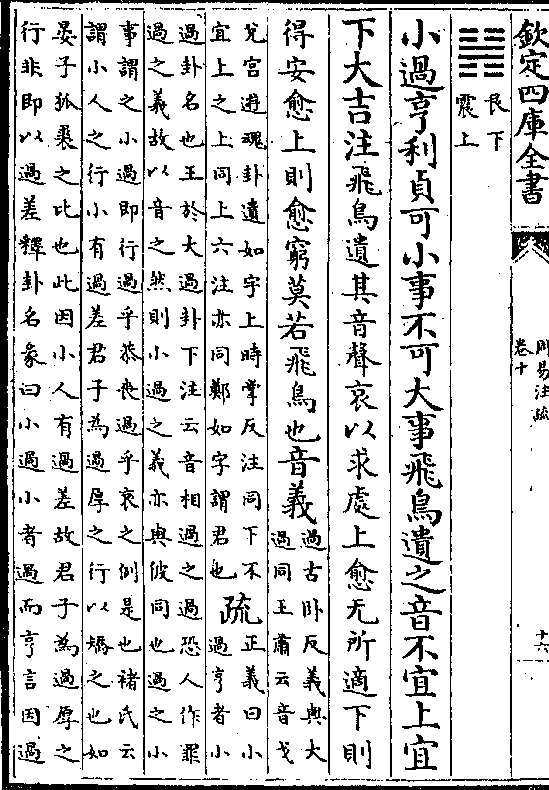 欽定四庫全書
周易注疏
卷十
十六
䷽
艮下
震上
小過亨利貞可小事不可大事飛鳥遺之音不宜上宜
下大吉注飛鳥遺其音聲哀以求處上愈无所適下則
得安愈上則愈窮莫若飛鳥也音義
過古卧反義與大
過同王肅云音戈
兌宮遊魂卦遺如字上時掌反注同下不
宜上之上同上六注亦同鄭如字謂君也
疏
正義曰小
過亨者小
過卦名也王於大過卦下注云音相過之過恐人作罪
過之義故以音之然則小過之義亦與彼同也過之小
事謂之小過即行過乎恭喪過乎哀之例是也褚氏云
謂小人之行小有過差君子為過厚之行以矯之也如
晏子狐裘之比也此因小人有過差故君子為過厚之
行非即以過差釋卦名彖曰小過小者過而亨言因過